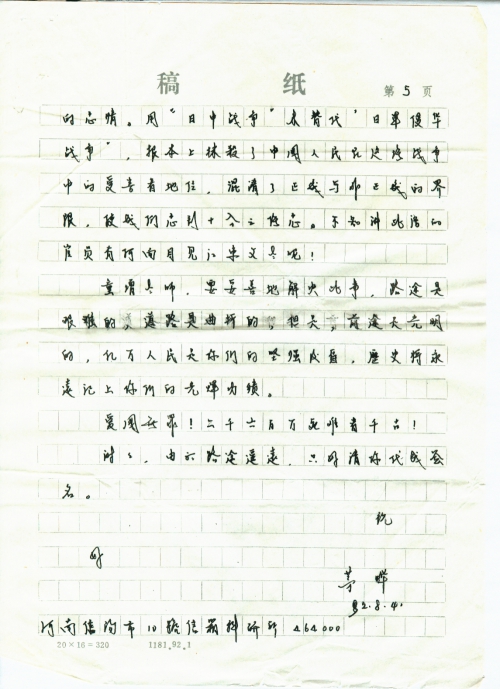 稿 纸
第 5 页
的心情。用“日中战争”来替代“日军侵华
战争”，根本上抹杀了中国人民在这场战争
中的受害者地位，混淆了正义与非正义的界
限，使我们感到十分之愤慨。不知讲此话的
官员有何面目见江东父老呢！
童增先师，要妥善地解决此事，路途是
艰难的，道路是曲折的，但是，前途是光明
的，亿万人民是你们的坚强后盾，历史将永
远记上你们的光辉功绩。
爱国无罪！
对了，由于路途遥远，只好请你代我签
名。
祝
好
82.8.4.
河南信阳市10路信箱科研所 464000
20×16=320 1181.92.1